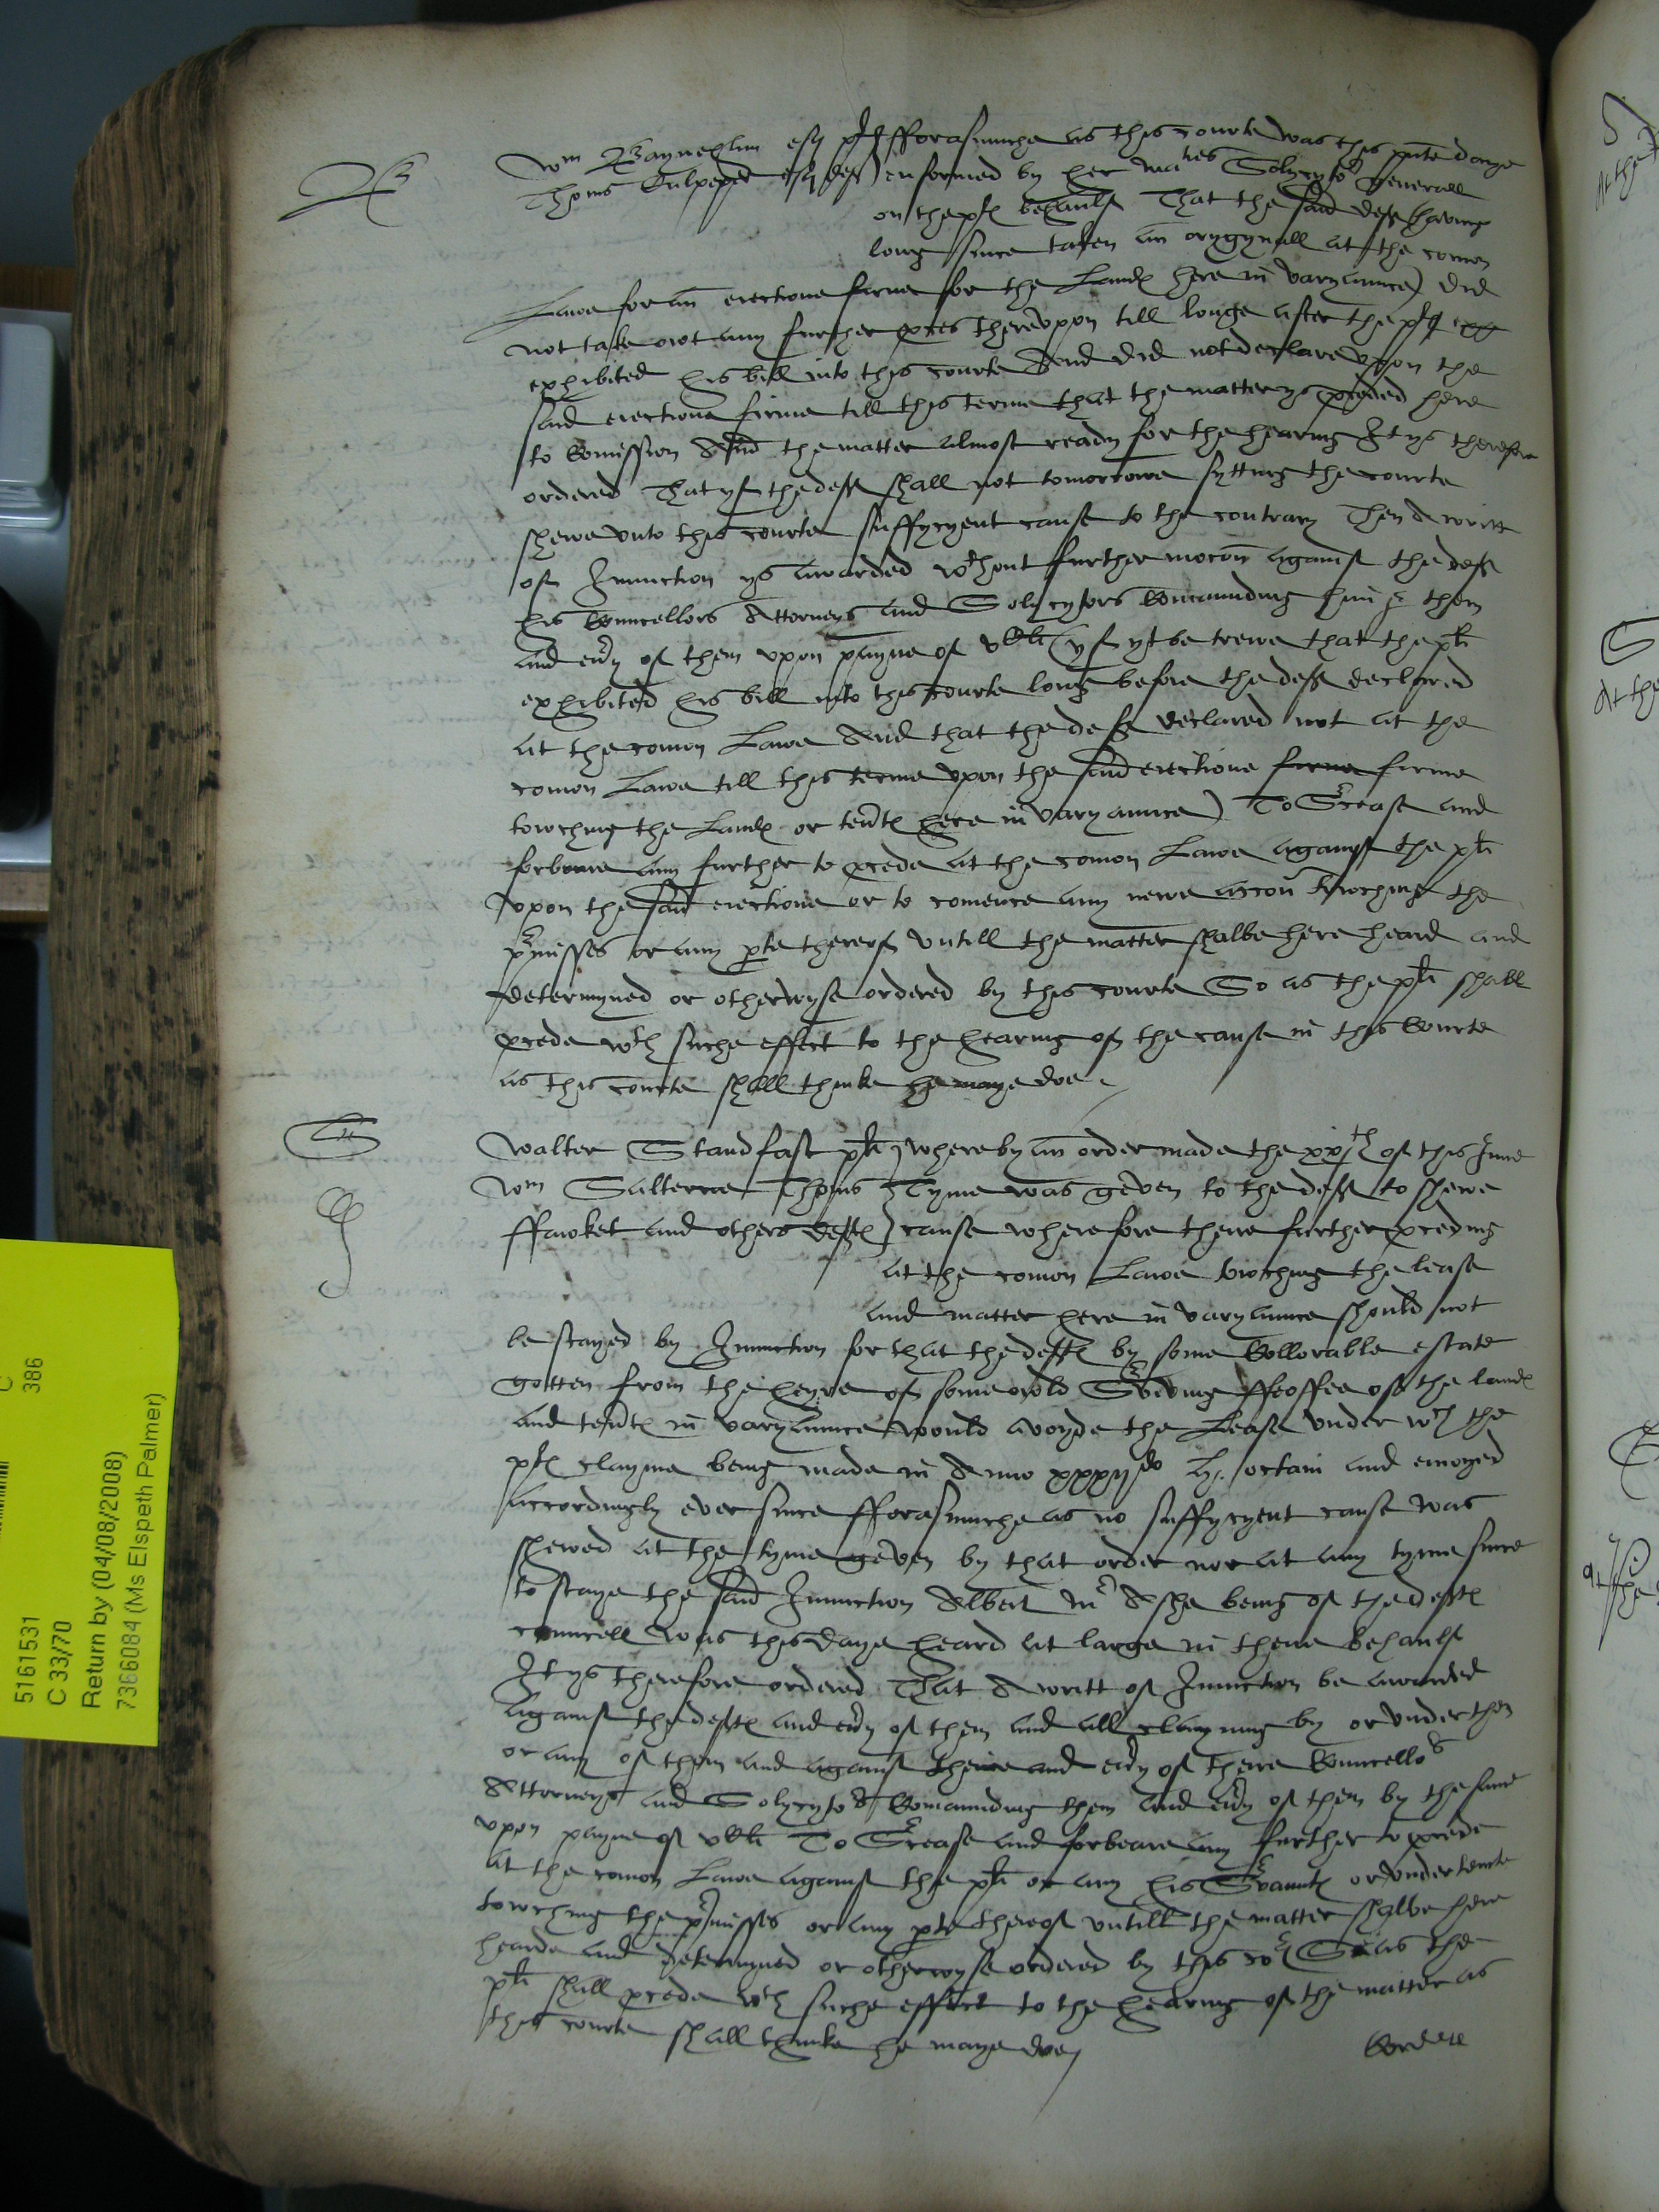 Wm Ra[...] esq pl fforasmuche as this courte was this pnte daye
Thoms Culpeper esq def enformed by her ma:ties Solycyto:r generall
on the pl behaulf That the said def having
long since taken an orygynall at the comon
Lawe for an eiectione firme for the Land here in varyaunce) did
not take owt any further proces therevpon till longe after the pl
exhibited his bill into this courte And did not declare vpon the
said eiectione firme till this terme that the matter ys proceded here
to Comission And the matter almost ready for the hearing It ys therefore
ordered That yf the def shall not tomorrowe sytting the courte
shewe vnto this courte suffycyent cause to the contrary Then A writt
of Iniunction ys awarded wthout further mocon against the def
his Councellors Attorneys and Solycytors Comaunding him & them
and eu9y of them vpon payne of vCli (yf yt be trewe that the pl
exhibited his bill into this courte long before the def declared
at the comon Lawe And that the def declared not at the
comon Lawe till this terme vpon the said eiectione firme firme
towching the Land or tent here in varyaunce) To Surcease and
forbeare any further to procede at the comon Lawe against the pl
vpon the said eiectione or to comence any newe accon towching the
pmisses or any pte thereof vntill the matter shalbe here heard and
determyned or otherwyse ordered by this courte So as the pl shall
procede wth suche effect to the hearing of the cause in this Courte
as this courte shall thinke he maye doe
Walter Standfast pl where by an order made the xxjth of this June
Wm Salterne Thoms Tyme was geven to the def to shewe
ffawket and others deft cause wherefore theire further proceding
at the comon Lawe towching the lease
and matter here in varyaunce should not
be stayed by Iniunction for that the deft by some Collorable estate
gotten from the heyre of some owld Surviving ffeoffee of the land
and tent in varyaunce would avoyde the Lease vnder wch the
pl clayme being made in Anno xxxijdo H. octaui and enioyed
accordingly ever since fforasmuche as no suffycyent cause was
shewed at the tyme geven by that order nor at any tyme since
to staye the said Iniunction Albeit Mr Ashe being of the deft
councell was this daye heard at large in theire behaulf
It ys therefore ordered That A writt of Iniunction be awarded
against the deft and eu9y of them and all clayming by or vnder them
or any of them and against theire and eu9y of theire Councellors
Attorneys and Solycytors Comaunding them and eu9y of them by the same
vpon payne of vCli To Surcease and forbeare any further to procede
at the comon Lawe against the pl or any his Servaunt or vndertennte
towching the pmisses or any pte thereof vntill the matter shalbe here
hearde and determyned or otherwyse ordered by this cort So as the
pl shall procede wth suche effect to the hearing of the matter as
this courte shall thinke he maye doe
Cordell
5161531
C 386
C 33/70
Return by (04/08/2008)
7366084 (Ms Elspeth Palmer)